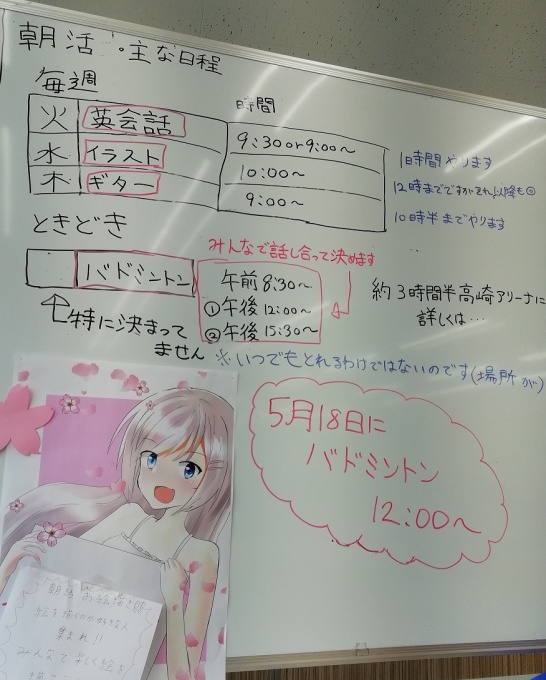 朝活 ・主な日程
毎週
時間
火 英会話 9:30or9:00~
1時間やります
水 イラスト 10:00~
12時までですがそれ以降も
木 ギター 9:00~
10時半までやります
ときどき
みんなで話し合って決めます
バドミントン
午前 8:30~
①午後 12:00~
②午後 15:30~
約3時間半高崎アリーナに
詳しくは…
特に決まって
ません
※いつでもとれるわけではないのです(場所が)
5月18日に
バドミントン
12:00~
朝活 お絵描き
絵を描くのが好きな人
集まれ!!
みんなで楽しく絵を